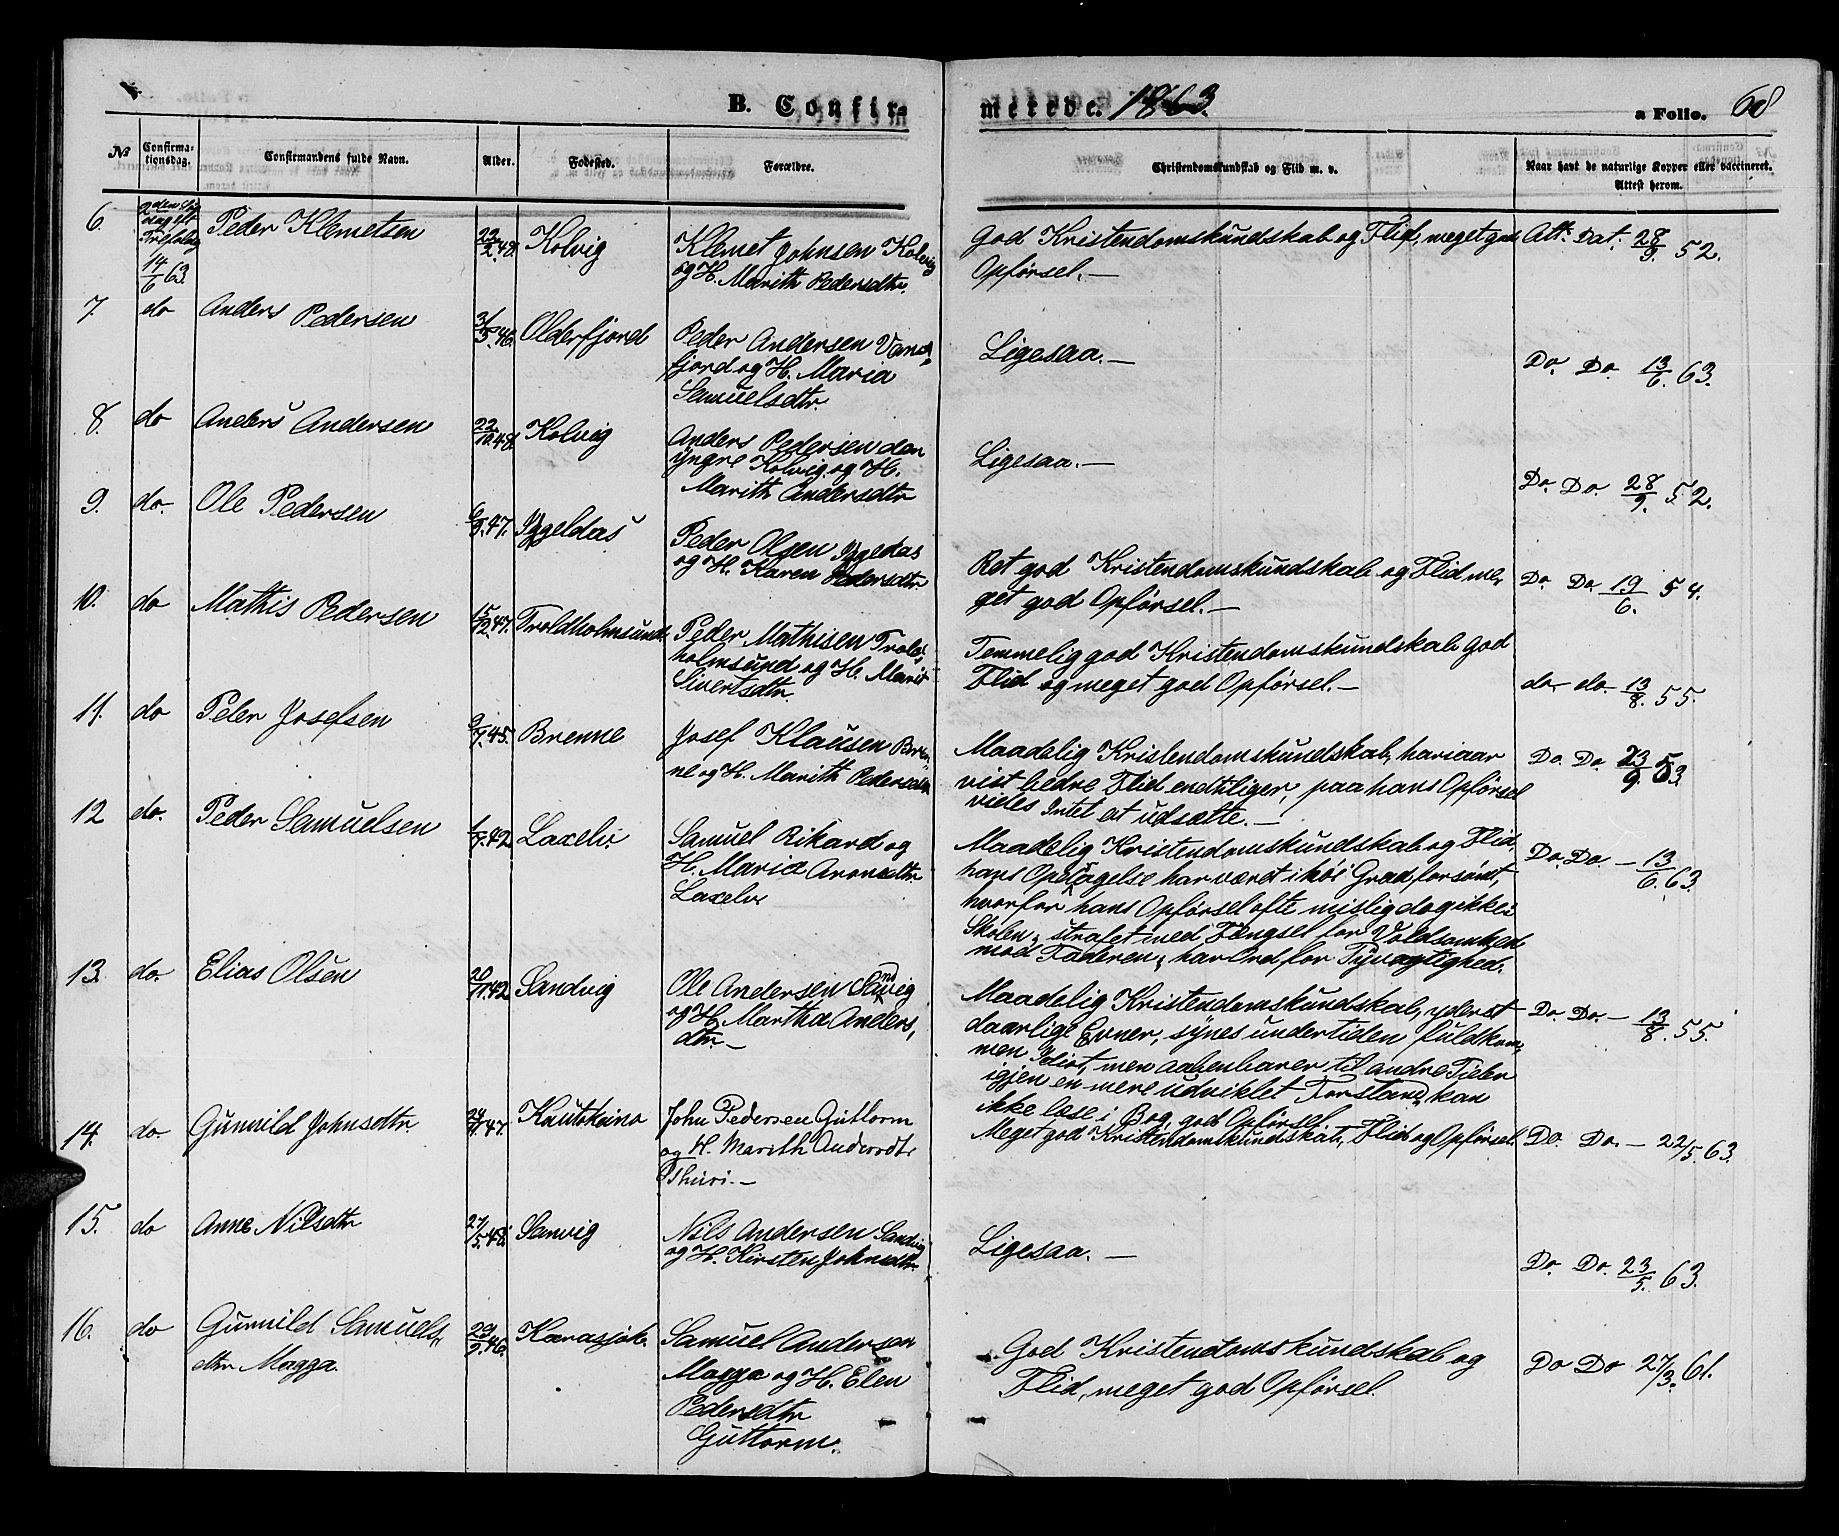 B. Confir-
merede. 1863.
a Folio. 68
No
Confirma-
tionsdag.
Confirmandens fulde Navn.
Alder.
Fødested.
Forældre.
Christendomskundskab og Flid m. v.
Naar havt de naturlige Kopper eller vaccineret.
Attest herom.
6.
14/6 63.
Peder Klemetsen
22/2 48.
Kolvig
Klemet Johnsen Kolvig
og H. Marith Pedersdtr.
God Kristendomskundskab og Flid, meget god
Opførsel. —
Att. Dat. 28/9. 52.
7.
do
Anders Pedersen
31/5. 46.
Olderfjord
Peder Andersen Vand
fjord og H. Maria
Samuelsdtr.
Ligesaa. —
Do. Do. 13/6. 63.
8.
do
Anders Andersen
22/10 48.
Kolvig
Anders Pedersen den
yngre Kolvig og H.
Marith Andersdtr
Ligesaa. —
Do. Do. 28/9. 52.
9.
do.
Ole Pedersen
6/9. 47.
Iggeldas
Peder Olsen Iggedas
og H. Karen Pedersdtr.
Ret god Kristendomskundskab og Flid me,
get god Opførsel. —
Do Do 19/6. 54.
10.
do
Mathis Pedersen
15/12 47.
Troldholmsund.
Peder Mathisen Trold
holmsund og H. Marit
Sivertsdtr.
Temmelig god Kristendomskundskab God
Flid og meget god Opførsel. —
do do. 13/8. 55.
11.
do
Peder Josefsen
9/7. 45.
Brenne
Josef Klausen Bren
ne og H. Marith Pedersdtr
Maadelig Kristendomskundskab, har iaar
vist bedre Flid end tiliger, paa hans Opførsel
vides Intet at udsætte. —
Do. Do. 23/9. 53.
12
do.
Peder Samuelsen
1/7. 42
Laxelv.
Samuel Rikard og
H. Maria Aronsdtr
Laxelv
Maadelig Kristendomskundskab og Flid.
hans Opdragelse har været i høi Grad forsømt,
hvorfor hans Opførsel ofte mislig dog ikke i
Skolen; strafet med Fængsel for Voldsomhed
mod Faderen; har Ord for Tyvagtighed.
Do. Do. — 13/6. 63.
13.
do.
Elias Olsen
20/11. 42
Sandvig
Ole Andersen Sandvig
og H. Martha Anders,
dtr. —
Maadelig Kristendomskundskab, yderst
daarlige Evner, synes undertiden fuldkom,
men Idiot, men aabenbarer til andre Tider
igjen en mere udviklet Forstand, kan
ikke læse i Bog, god Opførsel
Do. Do. — 13/8. 55.
14.
do.
Gunnild Johnsdtr.
24/7. 47.
Kautokeino
John Pedersen Guttorm
og H. Marith Andersdtr
Thuri. —
Meget god Kristendomskundskab, Flid og Opførsel.
Do. Do. — 22/5. 63.
15.
do
Anne Nilsdtr
27/5. 48.
Sanvig
Nils Andersen Sandvig
og H. Kirsten Johnsdtr.
Ligesaa. —
Do. Do. 23/5. 63.
16.
do
Gunnild Samuels,
dtr Magga.
29/9. 46.
Karasjok.
Samuel Andersen
Magga og H. Elen
Pedersdtr
Guttorm.
God Kristendomskundskab og
Flid, meget god Opførsel.
Do Do 27/3. 61.